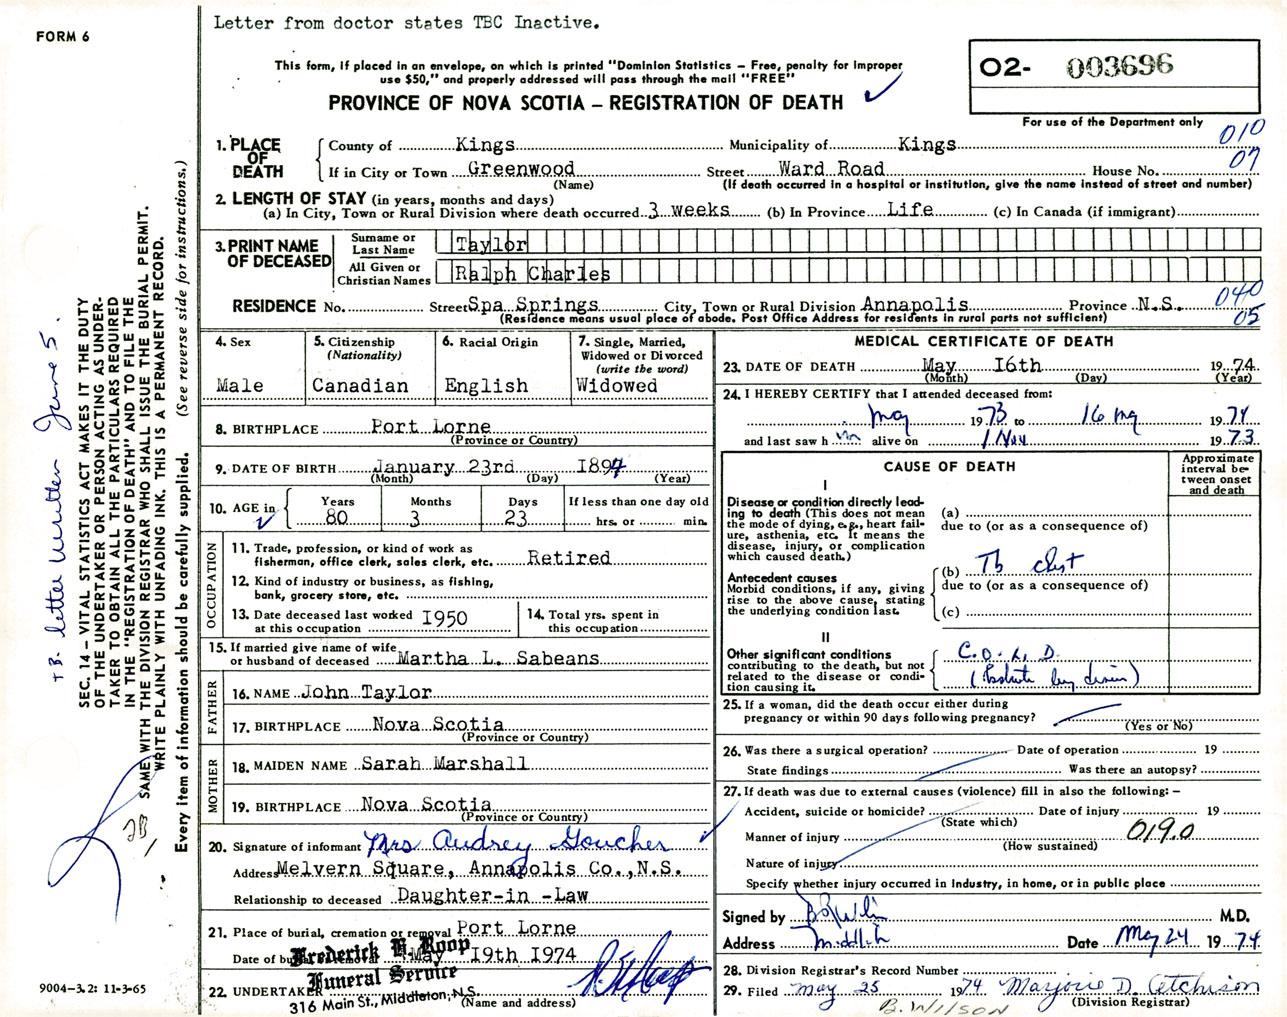 Letter from doctor states TBC Inactive.
FORM 6
This form, if placed in an envelope, on which is printed "Dominion Statistics – Free, penalty for improper
use $50," and properly addressed will pass through the mail "FREE"
PROVINCE OF NOVA SCOTIA – REGISTRATION OF DEATH
O2- 003696
For use of the Department only
010
07
1. PLACE OF DEATH
County of Kings Municipality of Kings
If in City or Town Greenwood Street Ward Road House No.
(Name) (If death occurred in a hospital or institution, give the name instead of street and number)
2. LENGTH OF STAY (in years, months and days)
(a) In City, Town or Rural Division where death occurred 3 weeks (b) In Province Life (c) In Canada (if immigrant)
3. PRINT NAME OF DECEASED
Surname or Last Name Taylor
All Given or Christian Names Ralph Charles
040
05
RESIDENCE No. Street Spa Springs City, Town or Rural Division Annapolis Province N.S.
(Residence means usual place of abode. Post Office Address for residents in rural parts not sufficient)
4. Sex
Male
5. Citizenship
(Nationality)
Canadian
6. Racial Origin
English
7. Single, Married,
Widowed or Divorced
(write the word)
Widowed
8. BIRTHPLACE Port Lorne
(Province or Country)
9. DATE OF BIRTH January 23rd I894
(Month) (Day) (Year)
10. AGE in
Years Months Days If less than one day old
80 3 23 hrs. or min.
OCCUPATION
11. Trade, profession, or kind of work as
fisherman, office clerk, sales clerk, etc. Retired
12. Kind of industry or business, as fishing,
bank, grocery store, etc.
13. Date deceased last worked
at this occupation I950
14. Total yrs. spent in
this occupation
15. If married give name of wife
or husband of deceased Martha L. Sabeans
FATHER
16. NAME John Taylor
17. BIRTHPLACE Nova Scotia
(Province or Country)
MOTHER
18. MAIDEN NAME Sarah Marshall
19. BIRTHPLACE Nova Scotia
(Province or Country)
20. Signature of informant Mrs Audrey Goucher
Address Melvern Square, Annapolis Co., N.S.
Relationship to deceased Daughter-in -Law
21. Place of burial, cremation or removal Port Lorne
Date of burial or removal May I9th I974
22. UNDERTAKER
(Name and address)
Frederick H. Roop
Funeral Service
316 Main St., Middleton, N.S.
MEDICAL CERTIFICATE OF DEATH
23. DATE OF DEATH May I6th 1974
(Month) (Day) (Year)
24. I HEREBY CERTIFY that I attended deceased from:
May 1973 to 16 My 1974
and last saw h im alive on 1 Nov 1973
CAUSE OF DEATH
Approximate
interval be-
tween onset
and death
I
Disease or condition directly lead-
ing to death (This does not mean
the mode of dying, e.g., heart fail-
ure, asthenia, etc. It means the
disease, injury, or complication
which caused death.)
(a)
due to (or as a consequence of)
Antecedent causes
Morbid conditions, if any, giving
rise to the above cause, stating
the underlying condition last.
(b) Tb chest
due to (or as a consequence of)
(c)
II
Other significant conditions
contributing to the death, but not
related to the disease or condi-
tion causing it.
C.O.L.D.
25. If a woman, did the death occur either during
pregnancy or within 90 days following pregnancy?
(Yes or No)
26. Was there a surgical operation? Date of operation 19
State findings Was there an autopsy?
27. If death was due to external causes (violence) fill in also the following: –
Accident, suicide or homicide? Date of injury 19
(State which)
Manner of injury 019.0
(How sustained)
Nature of injury
Specify whether injury occurred in industry, in home, or in public place
Signed by M.D.
Address Date May 24 1974
28. Division Registrar's Record Number
29. Filed May 25 1974 Marjorie D. Aitchison
(Division Registrar)
B. WILSON
SEC. 14 – VITAL STATISTICS ACT MAKES IT THE DUTY
OF THE UNDERTAKER OR PERSON ACTING AS UNDER-
TAKER TO OBTAIN ALL THE PARTICULARS REQUIRED
IN THE "REGISTRATION OF DEATH" AND TO FILE THE
SAME WITH THE DIVISION REGISTRAR WHO SHALL ISSUE THE BURIAL PERMIT.
WRITE PLAINLY WITH UNFADING INK. THIS IS A PERMANENT RECORD.
Every item of information should be carefully supplied. (See reverse side for instructions.)
TB. letter written June 5.
9004-3.2: 11-3-65